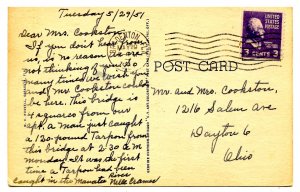 Tuesday 5/29/51
Dear Mrs. Cookston,
If you don't hear from
us, is no reason we are
not thinking of you. So
many times we wish you
and Mr Cookston could
be here. This bridge is
4 squares from our
apt. A man just caught
a 120 pound Tarpon from
this bridge at 2:30 A.M
Monday. It was the first
time a Tarpon had been
caught in the Manatee River
Nelle Cramer
BRADENTON
UNITED STATES POSTAGE
3 CENTS 3
POST CARD
Mr. and Mrs. Cookston,
1216 Salem Ave
Dayton 6
Ohio